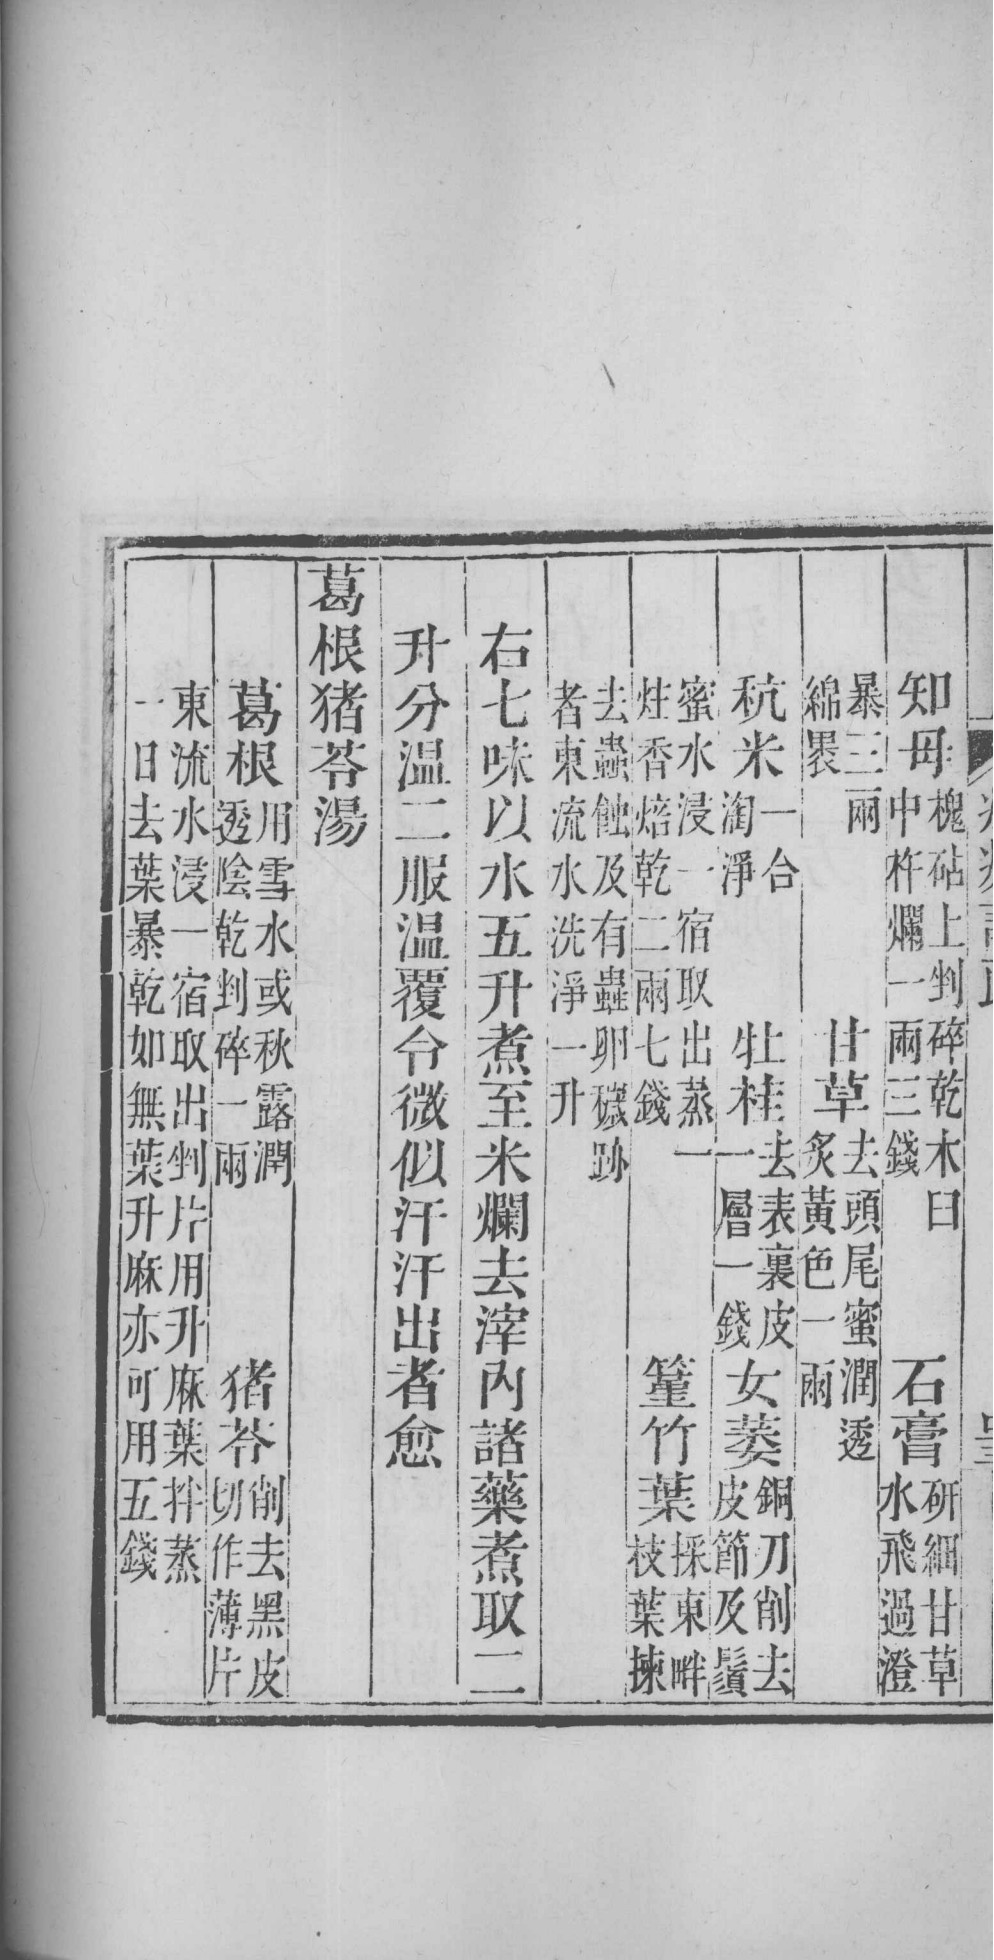 知母槐砧上剉碎乾木臼中杵爛一兩三錢　石膏研細甘草水飛過澄
暴三兩綿褁　甘草去頭尾蜜潤透炙黃色一兩
秔米一合淘淨　牡桂去表裏皮一層一錢　女萎銅刀削去皮節及鬚
蜜水浸一宿取出蒸一炷香焙乾二兩七錢　篁竹葉採東畔枝葉揀
去蟲蝕及有蟲卵穢跡者東流水洗淨一升
右七味以水五升煮至米爛去滓內諸藥煮取二
升分温二服温覆令微似汗汗出者愈
葛根猪苓湯
葛根用雪水或秋露潤透陰乾剉碎一兩　猪苓削去黑皮切作薄片
東流水浸一宿取出剉片用升麻葉拌蒸一日去葉暴乾如無葉升麻亦可用五錢